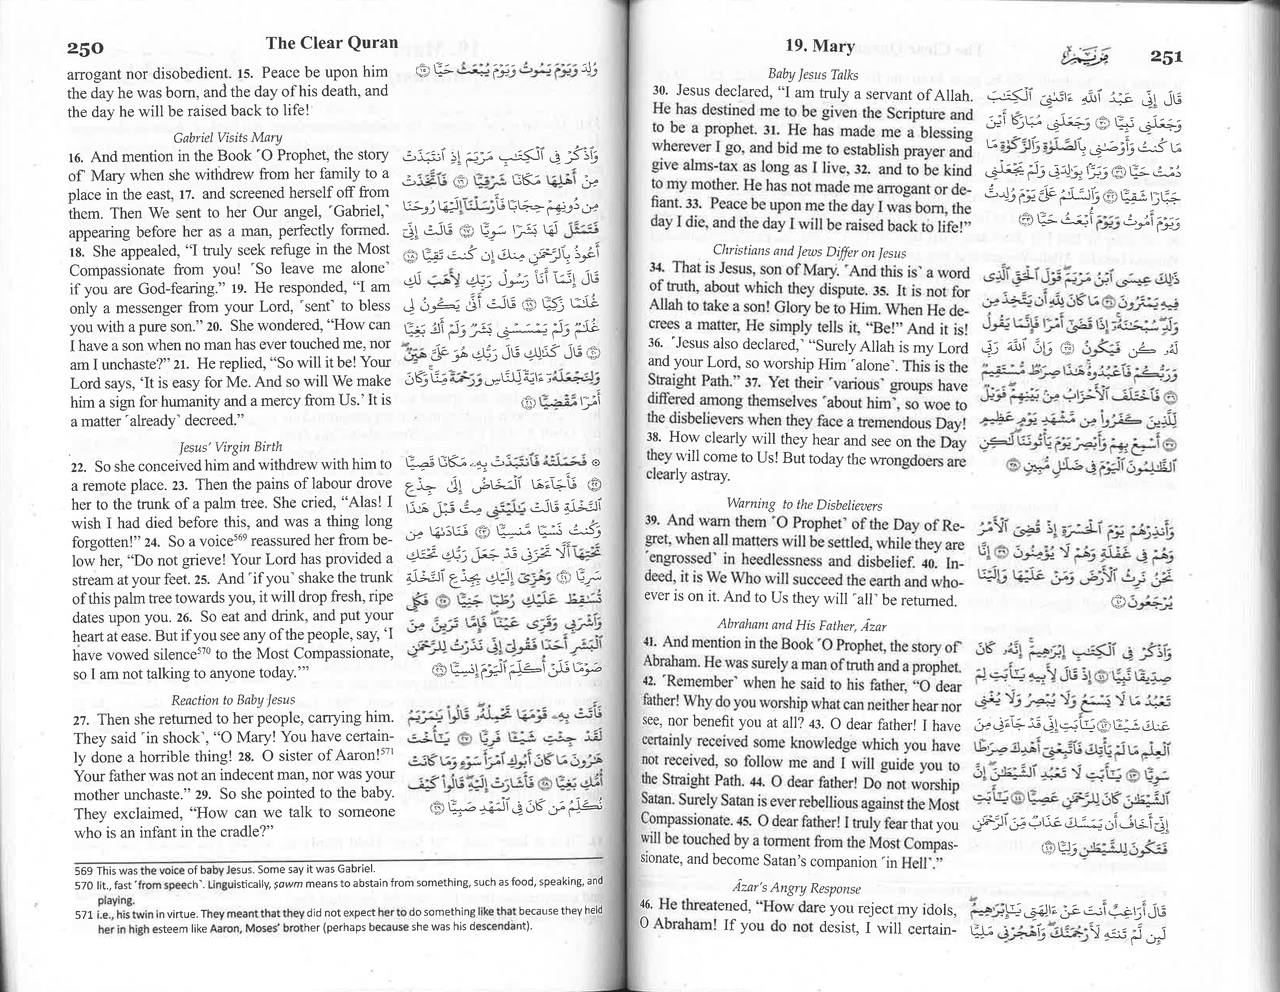 250
The Clear Quran
arrogant nor disobedient. 15. Peace be upon him
the day he was born, and the day of his death, and
the day he will be raised back to life!
وُلِدَ وَيَوْمَ يَمُوتُ وَيَوْمَ يُبْعَثُ حَيًّا ۝١٥
Gabriel Visits Mary
16. And mention in the Book ˹O Prophet, the story
of˺ Mary when she withdrew from her family to a
place in the east, 17. and screened herself off from
them. Then We sent to her Our angel, ˹Gabriel,˺
appearing before her as a man, perfectly formed.
18. She appealed, “I truly seek refuge in the Most
Compassionate from you! ˹So leave me alone˺
if you are God-fearing.” 19. He responded, “I am
only a messenger from your Lord, ˹sent˺ to bless
you with a pure son.” 20. She wondered, “How can
I have a son when no man has ever touched me, nor
am I unchaste?” 21. He replied, “So will it be! Your
Lord says, ‘It is easy for Me. And so will We make
him a sign for humanity and a mercy from Us.’ It is
a matter ˹already˺ decreed.”
وَٱذْكُرْ فِى ٱلْكِتَـٰبِ مَرْيَمَ إِذِ ٱنتَبَذَتْ
مِنْ أَهْلِهَا مَكَانًا شَرْقِيًّا ۝١٦ فَٱتَّخَذَتْ
مِن دُونِهِمْ حِجَابًا فَأَرْسَلْنَآ إِلَيْهَا رُوحَنَا
فَتَمَثَّلَ لَهَا بَشَرًا سَوِيًّا ۝١٧ قَالَتْ إِنِّىٓ
أَعُوذُ بِٱلرَّحْمَـٰنِ مِنكَ إِن كُنتَ تَقِيًّا ۝١٨
قَالَ إِنَّمَآ أَنَا۠ رَسُولُ رَبِّكِ لِأَهَبَ لَكِ
غُلَـٰمًا زَكِيًّا ۝١٩ قَالَتْ أَنَّىٰ يَكُونُ لِى
غُلَـٰمٌ وَلَمْ يَمْسَسْنِى بَشَرٌ وَلَمْ أَكُ بَغِيًّا
۝٢٠ قَالَ كَذَٰلِكِ قَالَ رَبُّكِ هُوَ عَلَىَّ هَيِّنٌ ۖ
وَلِنَجْعَلَهُۥٓ ءَايَةً لِّلنَّاسِ وَرَحْمَةً مِّنَّا ۚ وَكَانَ
أَمْرًا مَّقْضِيًّا ۝٢١
Jesus’ Virgin Birth
22. So she conceived him and withdrew with him to
a remote place. 23. Then the pains of labour drove
her to the trunk of a palm tree. She cried, “Alas! I
wish I had died before this, and was a thing long
forgotten!” 24. So a voice569 reassured her from be-
low her, “Do not grieve! Your Lord has provided a
stream at your feet. 25. And ˹if you˺ shake the trunk
of this palm tree towards you, it will drop fresh, ripe
dates upon you. 26. So eat and drink, and put your
heart at ease. But if you see any of the people, say, ‘I
have vowed silence570 to the Most Compassionate,
so I am not talking to anyone today.’”
۞ فَحَمَلَتْهُ فَٱنتَبَذَتْ بِهِۦ مَكَانًا قَصِيًّا
۝٢٢ فَأَجَآءَهَا ٱلْمَخَاضُ إِلَىٰ جِذْعِ
ٱلنَّخْلَةِ قَالَتْ يَـٰلَيْتَنِى مِتُّ قَبْلَ هَـٰذَا
وَكُنتُ نَسْيًا مَّنسِيًّا ۝٢٣ فَنَادَىٰهَا مِن
تَحْتِهَآ أَلَّا تَحْزَنِى قَدْ جَعَلَ رَبُّكِ تَحْتَكِ
سَرِيًّا ۝٢٤ وَهُزِّىٓ إِلَيْكِ بِجِذْعِ ٱلنَّخْلَةِ
تُسَـٰقِطْ عَلَيْكِ رُطَبًا جَنِيًّا ۝٢٥ فَكُلِى
وَٱشْرَبِى وَقَرِّى عَيْنًا ۖ فَإِمَّا تَرَيِنَّ مِنَ
ٱلْبَشَرِ أَحَدًا فَقُولِىٓ إِنِّى نَذَرْتُ لِلرَّحْمَـٰنِ
صَوْمًا فَلَنْ أُكَلِّمَ ٱلْيَوْمَ إِنسِيًّا ۝٢٦
Reaction to Baby Jesus
27. Then she returned to her people, carrying him.
They said ˹in shock˺, “O Mary! You have certain-
ly done a horrible thing! 28. O sister of Aaron!571
Your father was not an indecent man, nor was your
mother unchaste.” 29. So she pointed to the baby.
They exclaimed, “How can we talk to someone
who is an infant in the cradle?”
فَأَتَتْ بِهِۦ قَوْمَهَا تَحْمِلُهُۥ ۖ قَالُوا۟ يَـٰمَرْيَمُ
لَقَدْ جِئْتِ شَيْـًٔا فَرِيًّا ۝٢٧ يَـٰٓأُخْتَ
هَـٰرُونَ مَا كَانَ أَبُوكِ ٱمْرَأَ سَوْءٍ وَمَا كَانَتْ
أُمُّكِ بَغِيًّا ۝٢٨ فَأَشَارَتْ إِلَيْهِ ۖ قَالُوا۟ كَيْفَ
نُكَلِّمُ مَن كَانَ فِى ٱلْمَهْدِ صَبِيًّا ۝٢٩
569 This was the voice of baby Jesus. Some say it was Gabriel.
570 lit., fast ˹from speech˺. Linguistically, ṣawm means to abstain from something, such as food, speaking, and
playing.
571 i.e., his twin in virtue. They meant that they did not expect her to do something like that because they held
her in high esteem like Aaron, Moses’ brother (perhaps because she was his descendant).
19. Mary
مَرْيَم
251
Baby Jesus Talks
30. Jesus declared, “I am truly a servant of Allah.
He has destined me to be given the Scripture and
to be a prophet. 31. He has made me a blessing
wherever I go, and bid me to establish prayer and
give alms-tax as long as I live, 32. and to be kind
to my mother. He has not made me arrogant or de-
fiant. 33. Peace be upon me the day I was born, the
day I die, and the day I will be raised back to life!”
قَالَ إِنِّى عَبْدُ ٱللَّهِ ءَاتَىٰنِىَ ٱلْكِتَـٰبَ
وَجَعَلَنِى نَبِيًّا ۝٣٠ وَجَعَلَنِى مُبَارَكًا أَيْنَ
مَا كُنتُ وَأَوْصَـٰنِى بِٱلصَّلَوٰةِ وَٱلزَّكَوٰةِ مَا
دُمْتُ حَيًّا ۝٣١ وَبَرًّۢا بِوَٰلِدَتِى وَلَمْ يَجْعَلْنِى
جَبَّارًا شَقِيًّا ۝٣٢ وَٱلسَّلَـٰمُ عَلَىَّ يَوْمَ وُلِدتُّ
وَيَوْمَ أَمُوتُ وَيَوْمَ أُبْعَثُ حَيًّا ۝٣٣
Christians and Jews Differ on Jesus
34. That is Jesus, son of Mary. ˹And this is˺ a word
of truth, about which they dispute. 35. It is not for
Allah to take a son! Glory be to Him. When He de-
crees a matter, He simply tells it, “Be!” And it is!
36. ˹Jesus also declared,˺ “Surely Allah is my Lord
and your Lord, so worship Him ˹alone˺. This is the
Straight Path.” 37. Yet their ˹various˺ groups have
differed among themselves ˹about him˺, so woe to
the disbelievers when they face a tremendous Day!
38. How clearly will they hear and see on the Day
they will come to Us! But today the wrongdoers are
clearly astray.
ذَٰلِكَ عِيسَى ٱبْنُ مَرْيَمَ ۚ قَوْلَ ٱلْحَقِّ ٱلَّذِى
فِيهِ يَمْتَرُونَ ۝٣٤ مَا كَانَ لِلَّهِ أَن يَتَّخِذَ مِن
وَلَدٍ ۖ سُبْحَـٰنَهُۥٓ ۚ إِذَا قَضَىٰٓ أَمْرًا فَإِنَّمَا يَقُولُ
لَهُۥ كُن فَيَكُونُ ۝٣٥ وَإِنَّ ٱللَّهَ رَبِّى
وَرَبُّكُمْ فَٱعْبُدُوهُ ۚ هَـٰذَا صِرَٰطٌ مُّسْتَقِيمٌ
۝٣٦ فَٱخْتَلَفَ ٱلْأَحْزَابُ مِنۢ بَيْنِهِمْ ۖ فَوَيْلٌ
لِّلَّذِينَ كَفَرُوا۟ مِن مَّشْهَدِ يَوْمٍ عَظِيمٍ
۝٣٧ أَسْمِعْ بِهِمْ وَأَبْصِرْ يَوْمَ يَأْتُونَنَا ۖ لَـٰكِنِ
ٱلظَّـٰلِمُونَ ٱلْيَوْمَ فِى ضَلَـٰلٍ مُّبِينٍ ۝٣٨
Warning to the Disbelievers
39. And warn them ˹O Prophet˺ of the Day of Re-
gret, when all matters will be settled, while they are
˹engrossed˺ in heedlessness and disbelief. 40. In-
deed, it is We Who will succeed the earth and who-
ever is on it. And to Us they will ˹all˺ be returned.
وَأَنذِرْهُمْ يَوْمَ ٱلْحَسْرَةِ إِذْ قُضِىَ ٱلْأَمْرُ
وَهُمْ فِى غَفْلَةٍ وَهُمْ لَا يُؤْمِنُونَ ۝٣٩ إِنَّا
نَحْنُ نَرِثُ ٱلْأَرْضَ وَمَنْ عَلَيْهَا وَإِلَيْنَا
يُرْجَعُونَ ۝٤٠
Abraham and His Father, Ȃzar
41. And mention in the Book ˹O Prophet, the story of˺
Abraham. He was surely a man of truth and a prophet.
42. ˹Remember˺ when he said to his father, “O dear
father! Why do you worship what can neither hear nor
see, nor benefit you at all? 43. O dear father! I have
certainly received some knowledge which you have
not received, so follow me and I will guide you to
the Straight Path. 44. O dear father! Do not worship
Satan. Surely Satan is ever rebellious against the Most
Compassionate. 45. O dear father! I truly fear that you
will be touched by a torment from the Most Compas-
sionate, and become Satan’s companion ˹in Hell˺.”
وَٱذْكُرْ فِى ٱلْكِتَـٰبِ إِبْرَٰهِيمَ ۚ إِنَّهُۥ كَانَ
صِدِّيقًا نَّبِيًّا ۝٤١ إِذْ قَالَ لِأَبِيهِ يَـٰٓأَبَتِ لِمَ
تَعْبُدُ مَا لَا يَسْمَعُ وَلَا يُبْصِرُ وَلَا يُغْنِى
عَنكَ شَيْـًٔا ۝٤٢ يَـٰٓأَبَتِ إِنِّى قَدْ جَآءَنِى مِنَ
ٱلْعِلْمِ مَا لَمْ يَأْتِكَ فَٱتَّبِعْنِىٓ أَهْدِكَ صِرَٰطًا
سَوِيًّا ۝٤٣ يَـٰٓأَبَتِ لَا تَعْبُدِ ٱلشَّيْطَـٰنَ ۖ إِنَّ
ٱلشَّيْطَـٰنَ كَانَ لِلرَّحْمَـٰنِ عَصِيًّا ۝٤٤ يَـٰٓأَبَتِ
إِنِّىٓ أَخَافُ أَن يَمَسَّكَ عَذَابٌ مِّنَ ٱلرَّحْمَـٰنِ
فَتَكُونَ لِلشَّيْطَـٰنِ وَلِيًّا ۝٤٥
Ȃzar’s Angry Response
46. He threatened, “How dare you reject my idols,
O Abraham! If you do not desist, I will certain-
قَالَ أَرَاغِبٌ أَنتَ عَنْ ءَالِهَتِى يَـٰٓإِبْرَٰهِيمُ ۖ
لَئِن لَّمْ تَنتَهِ لَأَرْجُمَنَّكَ ۖ وَٱهْجُرْنِى مَلِيًّا